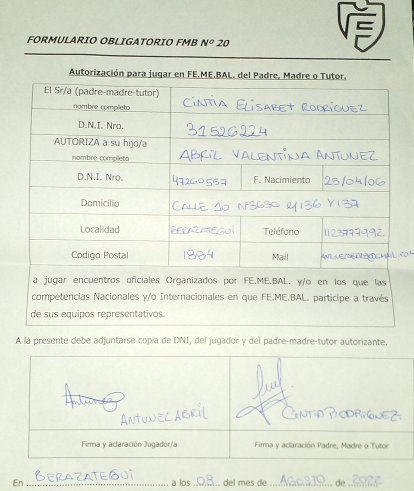 FORMULARIO OBLIGATORIO FMB Nº 20
Autorización para jugar en FE.ME.BAL. del Padre, Madre o Tutor.
El Sr/a (padre-madre-tutor) CINTIA ELISABET RODRIGUEZ
nombre completo
D.N.I. Nro. 31526224
AUTORIZA a su hijo/a ABRIL VALENTINA ANTUNEZ
nombre completo
D.N.I. Nro. 47260557 F. Nacimiento 25/04/06
Domicilio CALLE 10 Nº3630 e/136 Y 137
Localidad BERAZATEGUI Teléfono 1123777992
Codigo Postal 1884 Mail
a jugar encuentros oficiales Organizados por FE.ME.BAL. y/o en los que las
competencias Nacionales y/o Internacionales en que FE.ME.BAL. participe a través
de sus equipos representativos.
A la presente debe adjuntarse copia de DNI, del jugador y del padre-madre-tutor autorizante.
Antunez
ANTUNEZ ABRIL CINTIA RODRIGUEZ
Firma y aclaración Jugador/a Firma y aclaración Padre, Madre o Tutor
En BERAZATEGUI a los 08 del mes de AGOSTO de 2022